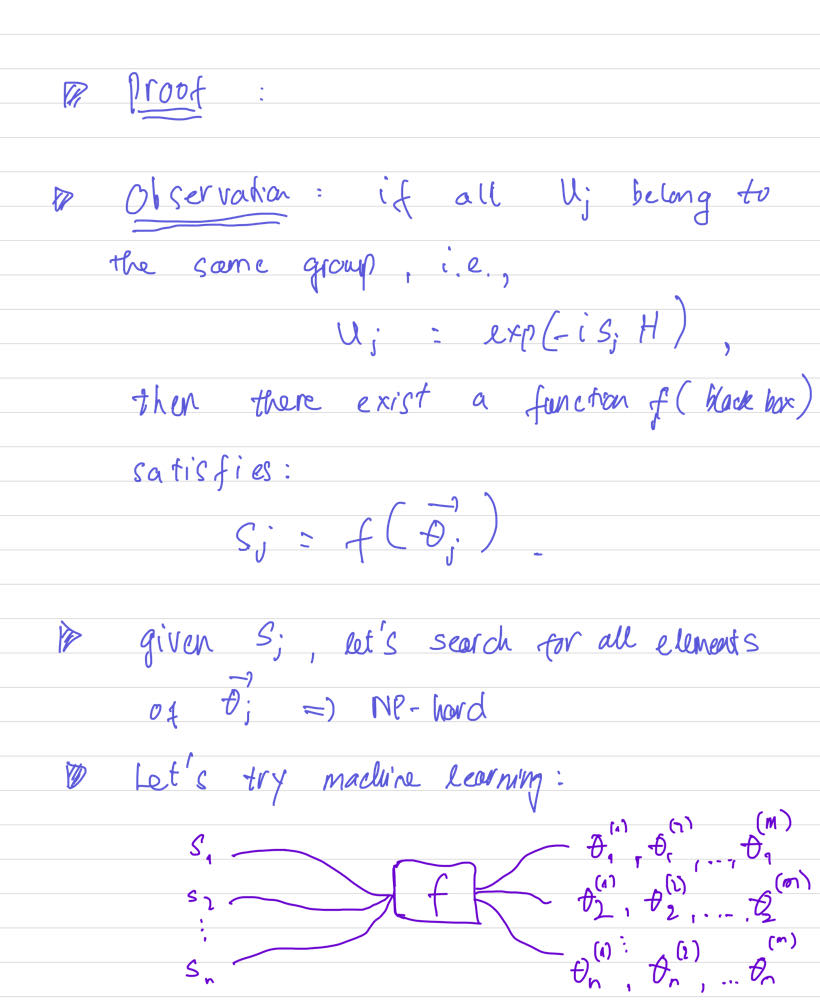 Proof :
Observation : if all U_j belong to
the same group, i.e.,
U_j = exp(-i s_j H),
then there exist a function f (black box)
satisfies:
s_j = f(\vec{θ}_j).
given s_j, let's search for all elements
of \vec{θ}_j => NP-hard
Let's try machine learning:
s_1 f θ_1^{(1)}, θ_1^{(2)}, ..., θ_1^{(m)}
s_2 θ_2^{(1)}, θ_2^{(2)}, ..., θ_2^{(m)}
⋮ ⋮
s_n θ_n^{(1)}, θ_n^{(2)}, ... θ_n^{(m)}